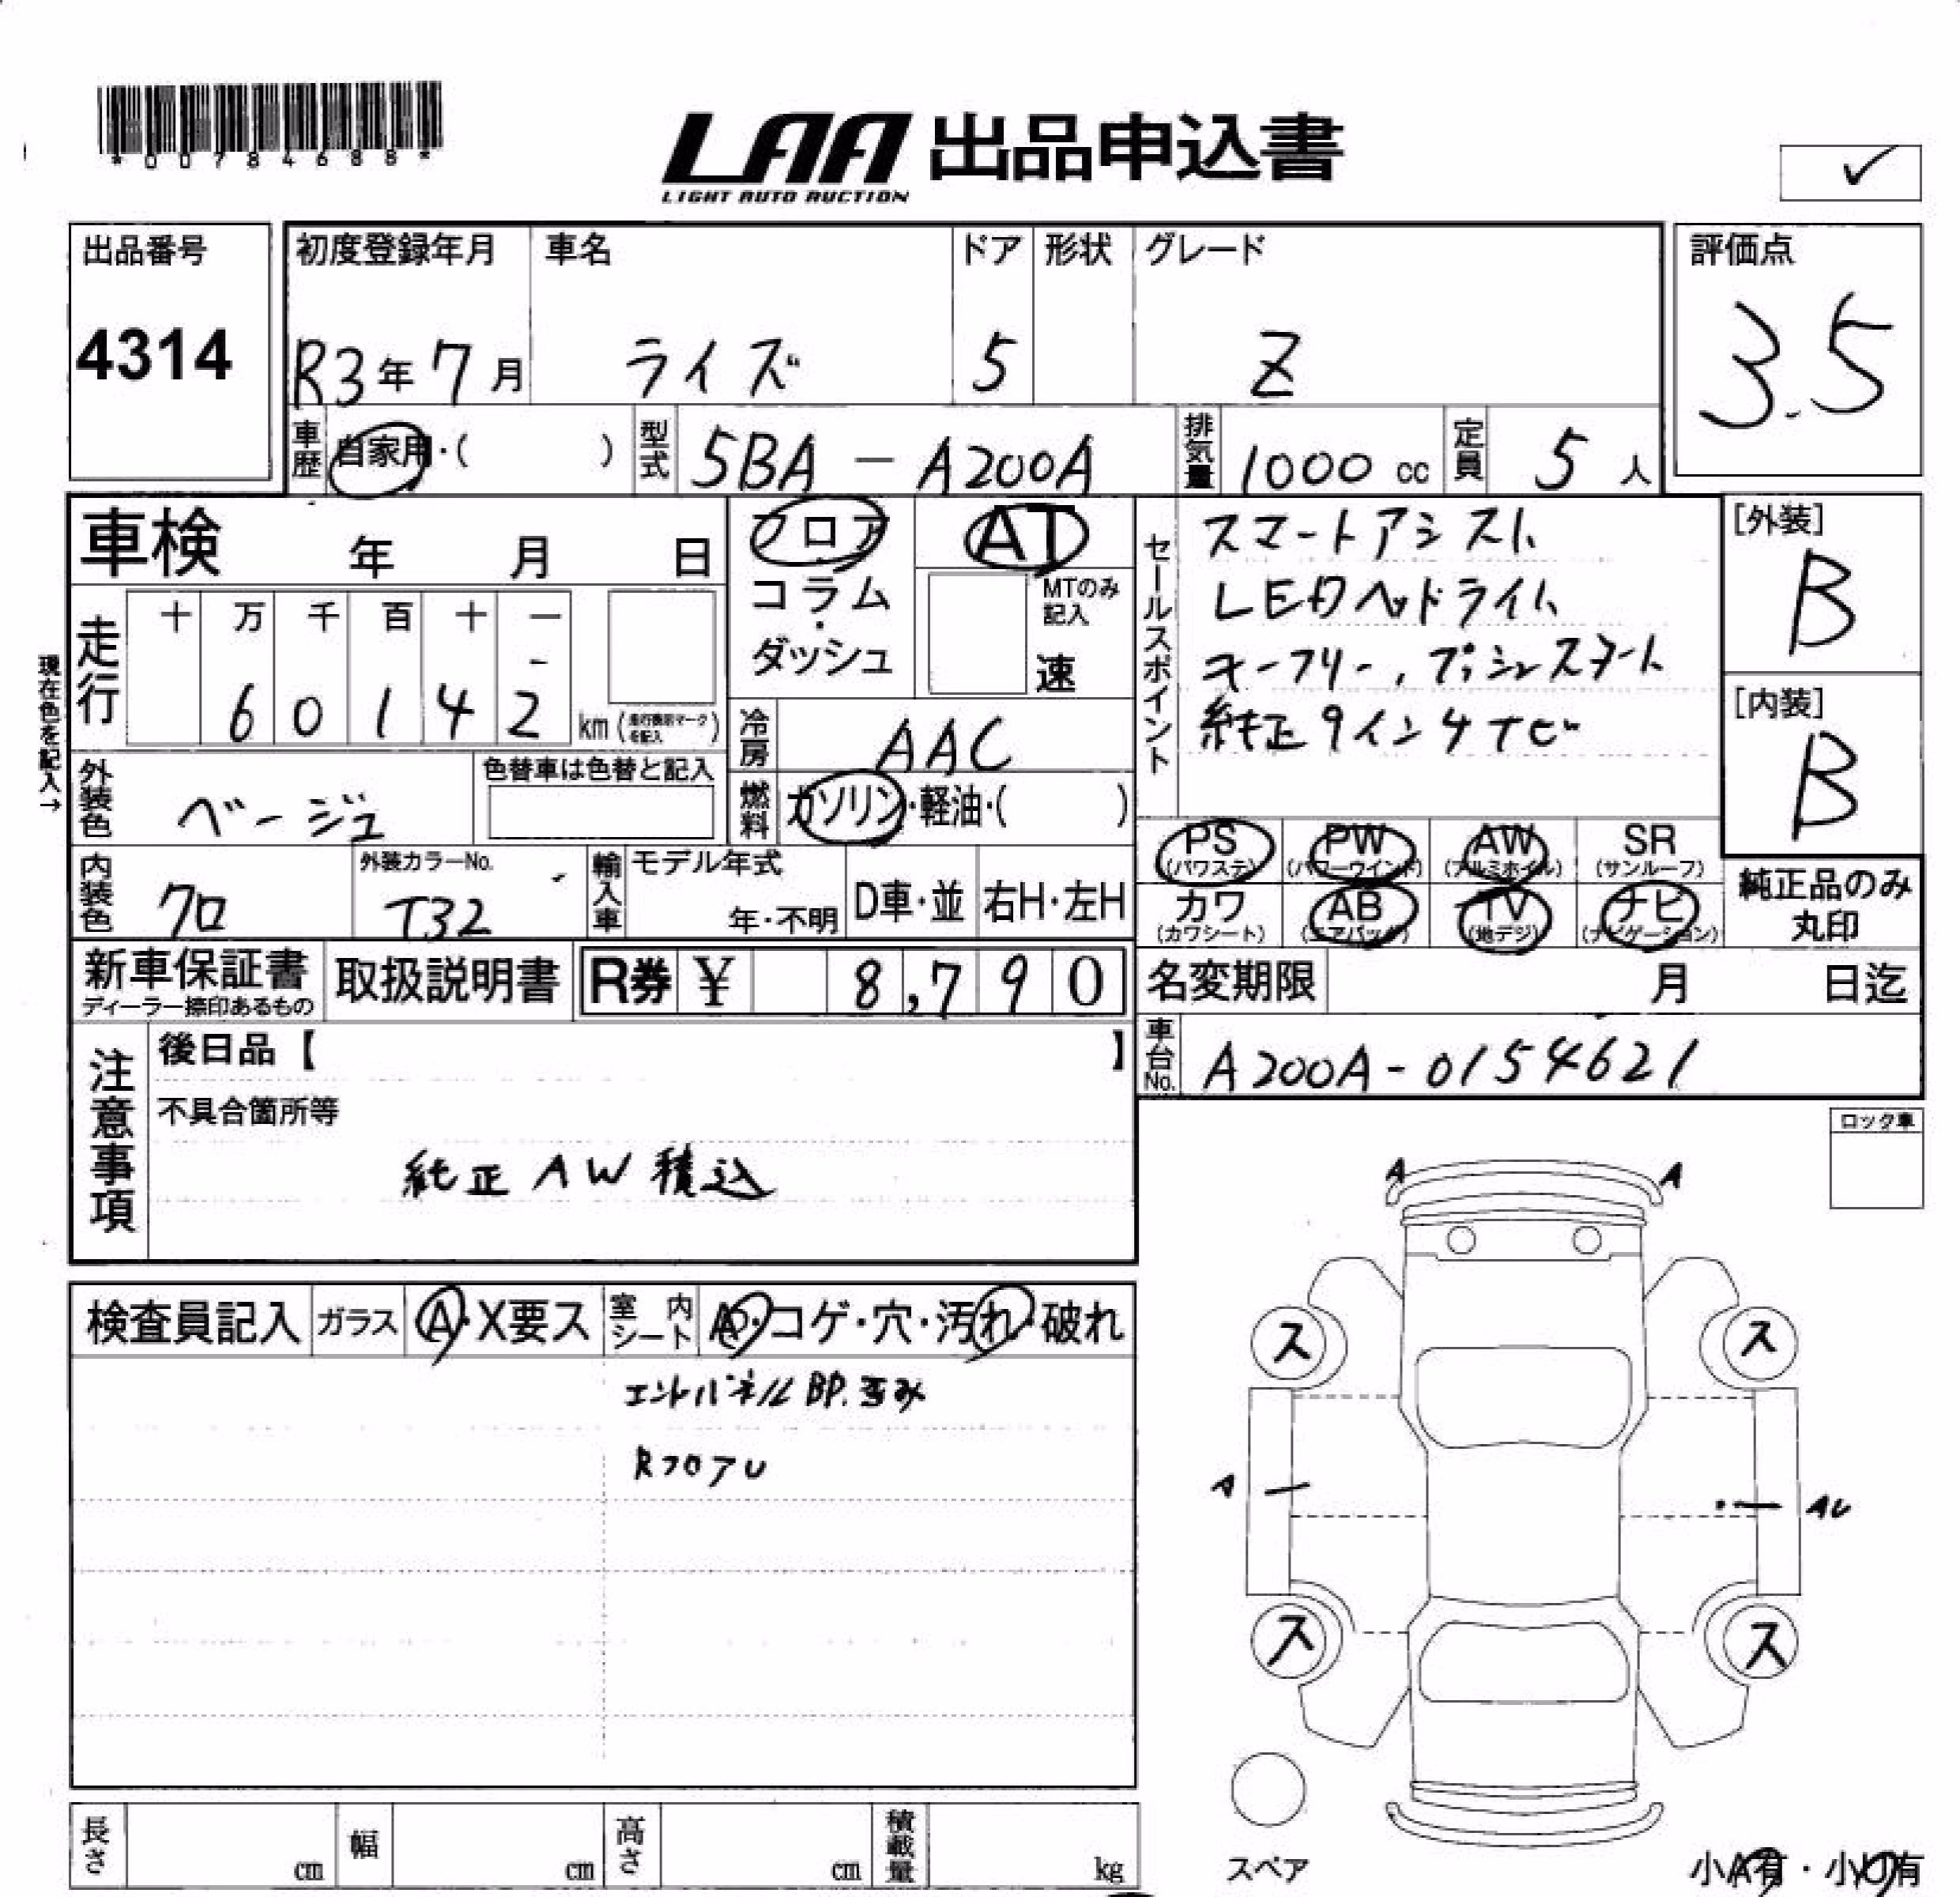 *00784688*
LAA 出品申込書
LIGHT AUTO AUCTION
✓
出品番号
4314
初度登録年月
R3年7月
車名
ライズ
ドア
5
形状
グレード
Z
評価点
3.5
車歴
自家用・( )
型式
5BA - A200A
排気量
1000 cc
定員
5 人
車検 年 月 日
フロア
・
コラム
・
ダッシュ
AT
MTのみ記入
速
セールスポイント
スマートアシスト
LEDヘッドライト
キーフリー、プッシュスタート
純正9インチナビ
[外装]
B
[内装]
B
現在色を記入→
走行
十 万 千 百 十 一
6 0 1 4 2
km (走行換示マークを記入)
冷房
AAC
燃料
ガソリン・軽油・( )
外装色
ベージュ
色替車は色替と記入
内装色
クロ
外装カラーNo.
T32
輸入車
モデル年式
年・不明
D車・並
右H・左H
PS
(パワステ)
PW
(パワーウインド)
AW
(アルミホイル)
SR
(サンルーフ)
カワ
(カワシート)
AB
(エアバッグ)
TV
(地デジ)
ナビ
(ナビゲーション)
純正品のみ
丸印
新車保証書
ディーラー捺印あるもの
取扱説明書
R券 ¥ 8,790
名変期限 月 日迄
車台No.
A200A-0154621
注意事項
後日品【 】
不具合箇所等
純正 AW 積込
ロック車
検査員記入
ガラス
A・X要ス
室内
シート
A・コゲ・穴・汚れ・破れ
エンドパネルBP.歪み
RフロアU
A
A
ス
ス
A
AU
ス
ス
スペア
小A有・小U有
長さ cm
幅 cm
高さ cm
積載量 kg